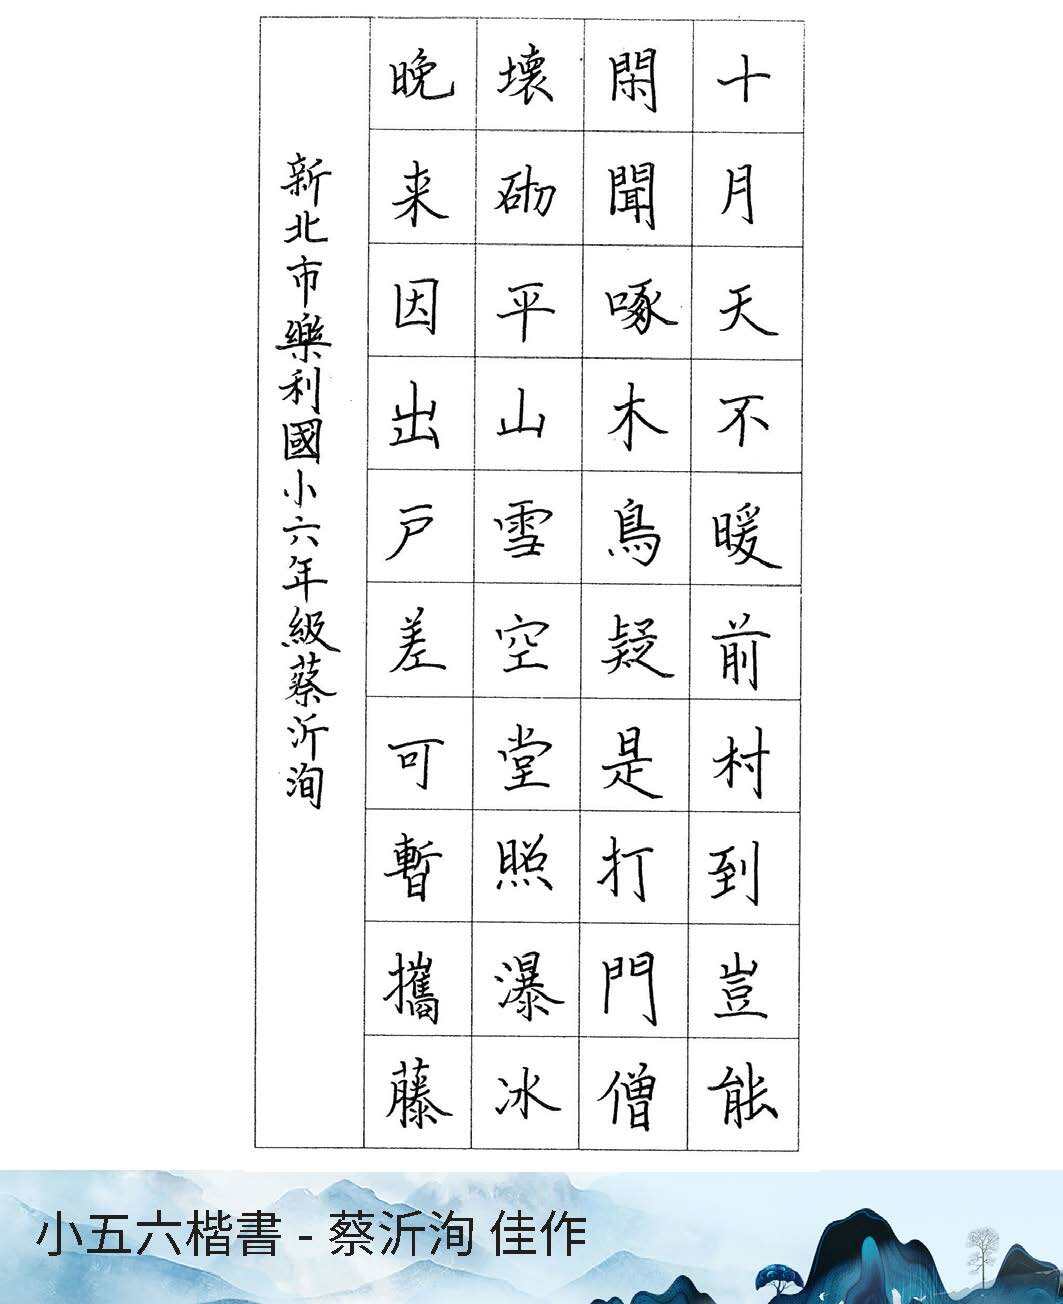 十月天不暖前村到豈能
閑聞啄木鳥疑是打門僧
壞砌平山雪空堂照瀑冰
晚来因出戶差可暫攜藤
新北市樂利國小六年級蔡沂洵
小五六楷書 - 蔡沂洵 佳作